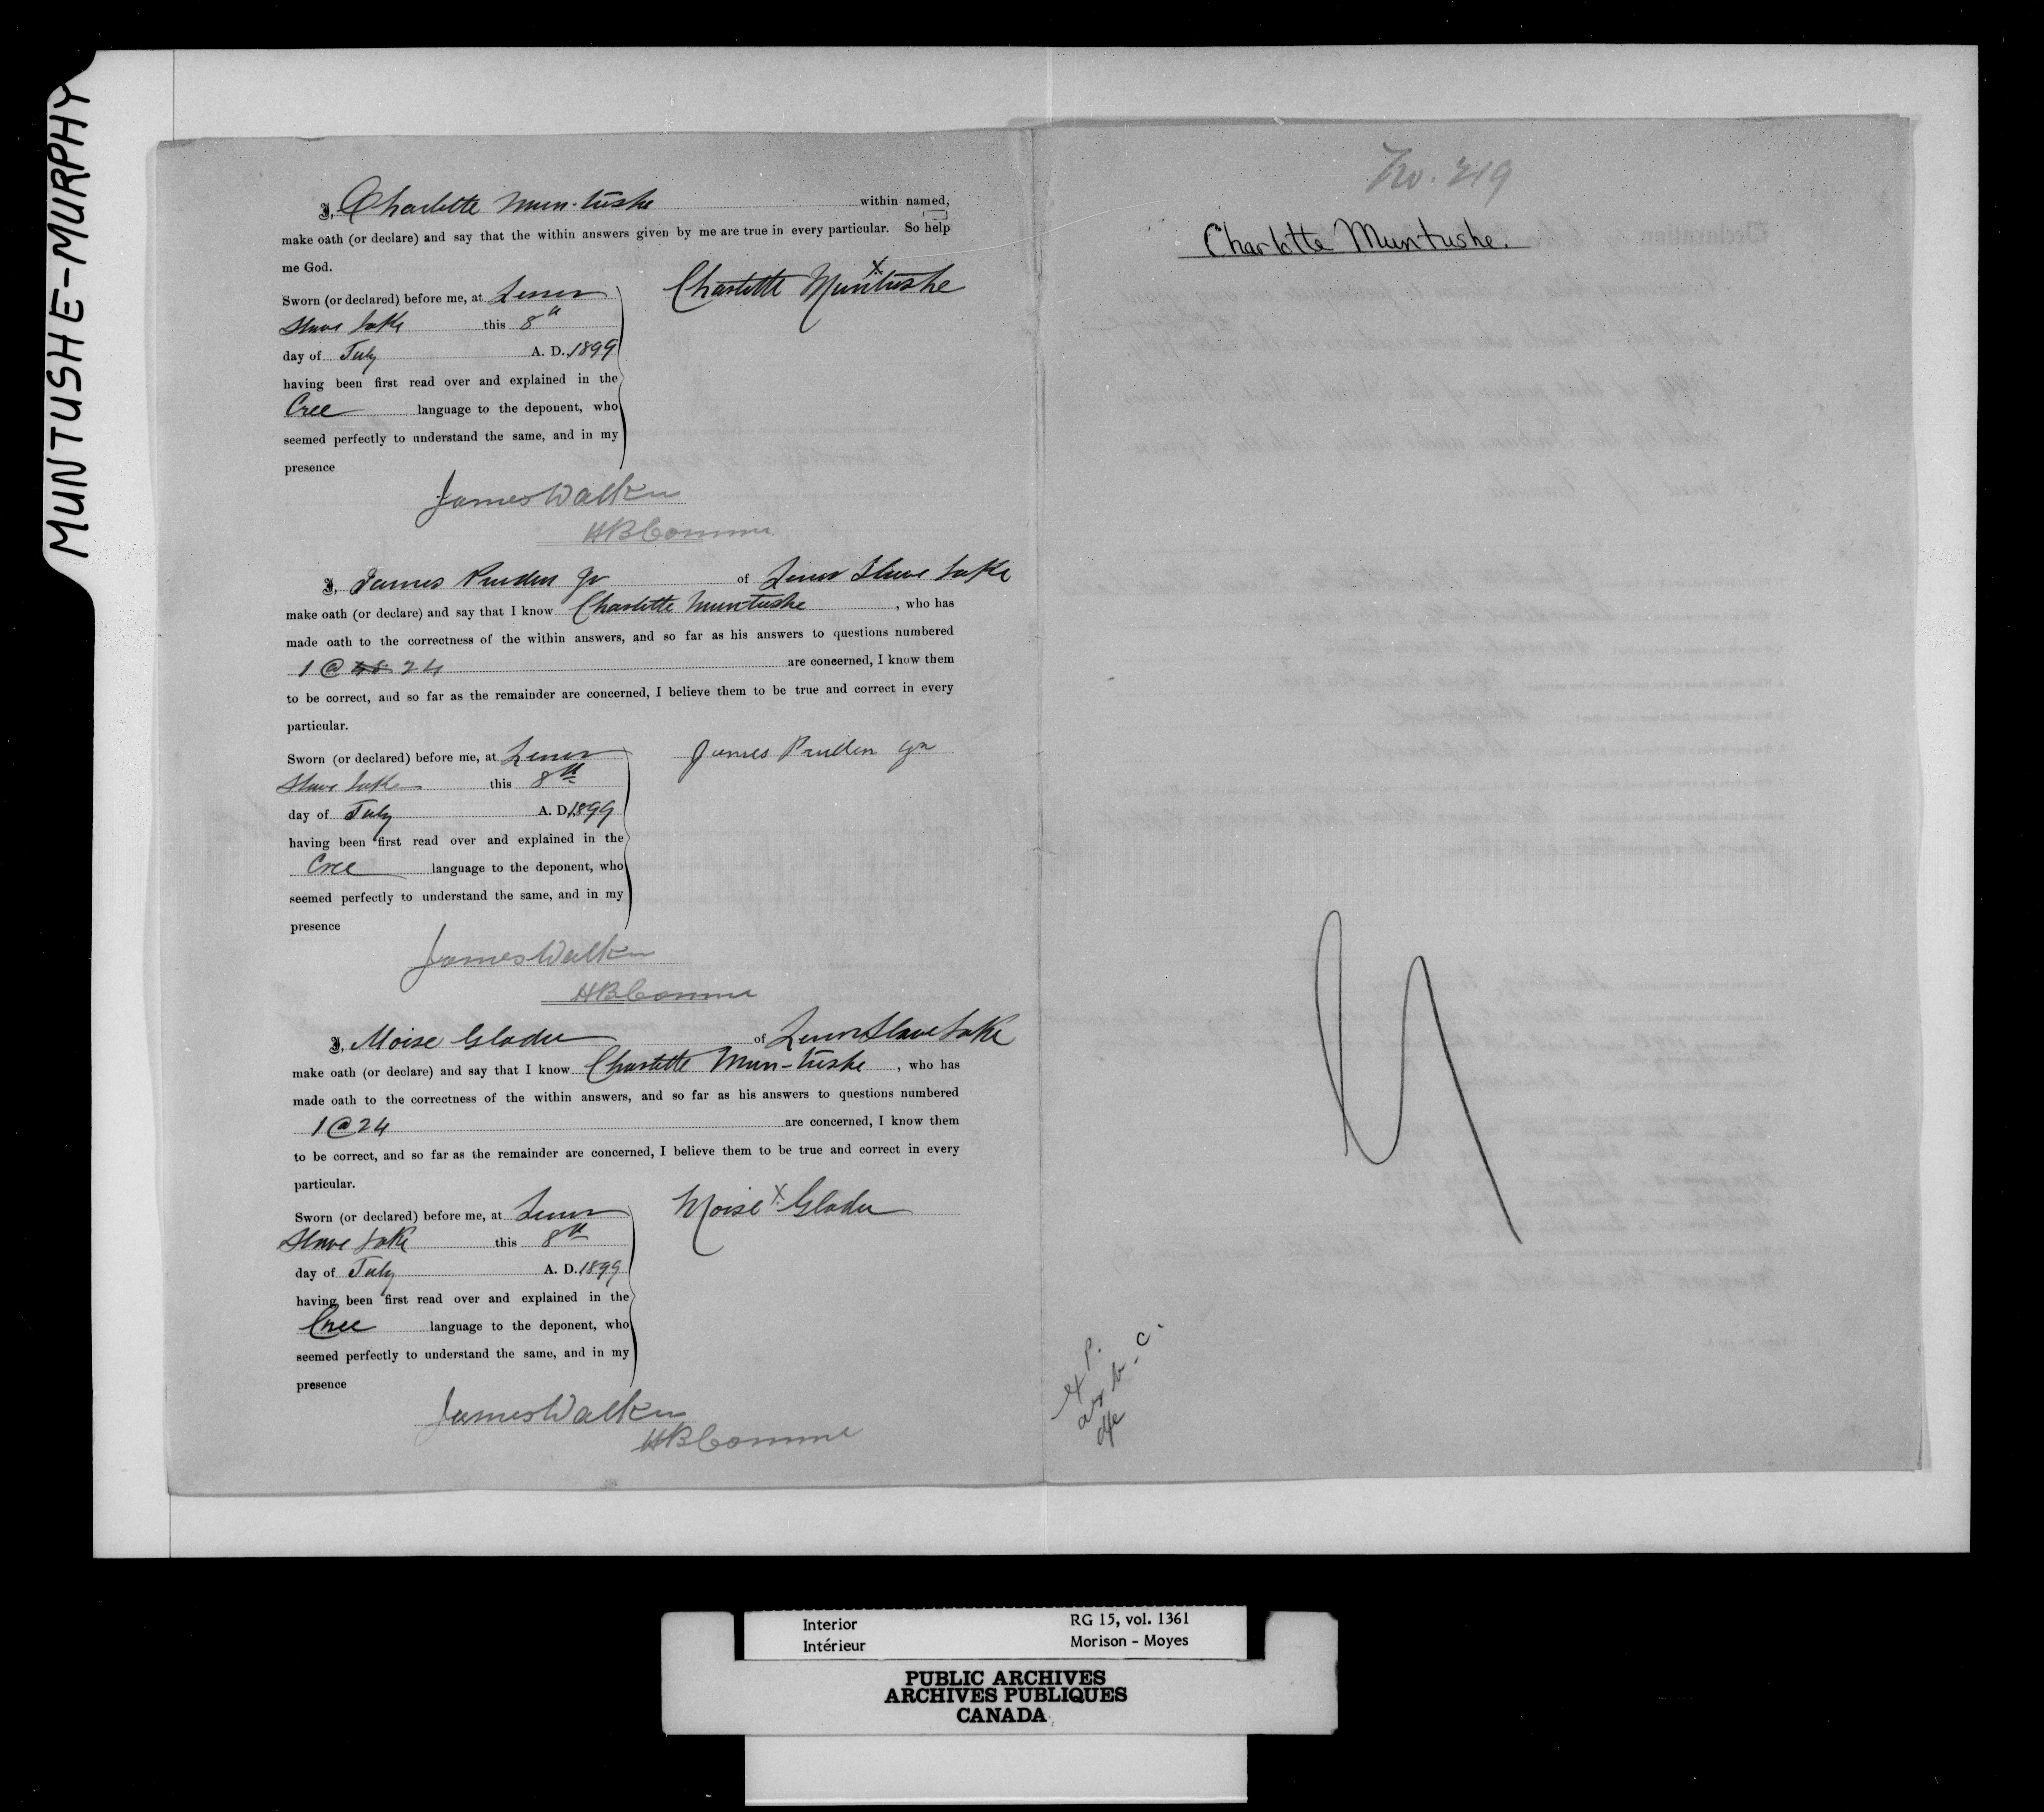 MUNTUSHE-MURPHY
I, Charlotte Mun-tushe within named,
make oath (or declare) and say that the within answers given by me are true in every particular. So help
me God.
Sworn (or declared) before me, at Lesser
Slave Lake this 8th
day of July A. D. 1899
having been first read over and explained in the
Cree language to the deponent, who
seemed perfectly to understand the same, and in my
presence
Charlotte X Muntushe
James Walker
HB Commr
I, James Pruden Jr of Lesser Slave Lake
make oath (or declare) and say that I know Charlotte Mun-tushe, who has
made oath to the correctness of the within answers, and so far as his answers to questions numbered
1 @ 24 are concerned, I know them
to be correct, and so far as the remainder are concerned, I believe them to be true and correct in every
particular.
Sworn (or declared) before me, at Lesser
Slave Lake this 8th
day of July A. D. 1899
having been first read over and explained in the
Cree language to the deponent, who
seemed perfectly to understand the same, and in my
presence
James Pruden Jr
James Walker
HB Commr
I, Moise Gladu of Lesser Slave Lake
make oath (or declare) and say that I know Charlotte Mun-tushe, who has
made oath to the correctness of the within answers, and so far as his answers to questions numbered
1 @ 24 are concerned, I know them
to be correct, and so far as the remainder are concerned, I believe them to be true and correct in every
particular.
Sworn (or declared) before me, at Lesser
Slave Lake this 8th
day of July A. D. 1899
having been first read over and explained in the
Cree language to the deponent, who
seemed perfectly to understand the same, and in my
presence
Moise X Gladu
James Walker
HB Commr
No. 219
Charlotte Muntushe.
Interior
Intérieur
RG 15, vol. 1361
Morison - Moyes
PUBLIC ARCHIVES
ARCHIVES PUBLIQUES
CANADA